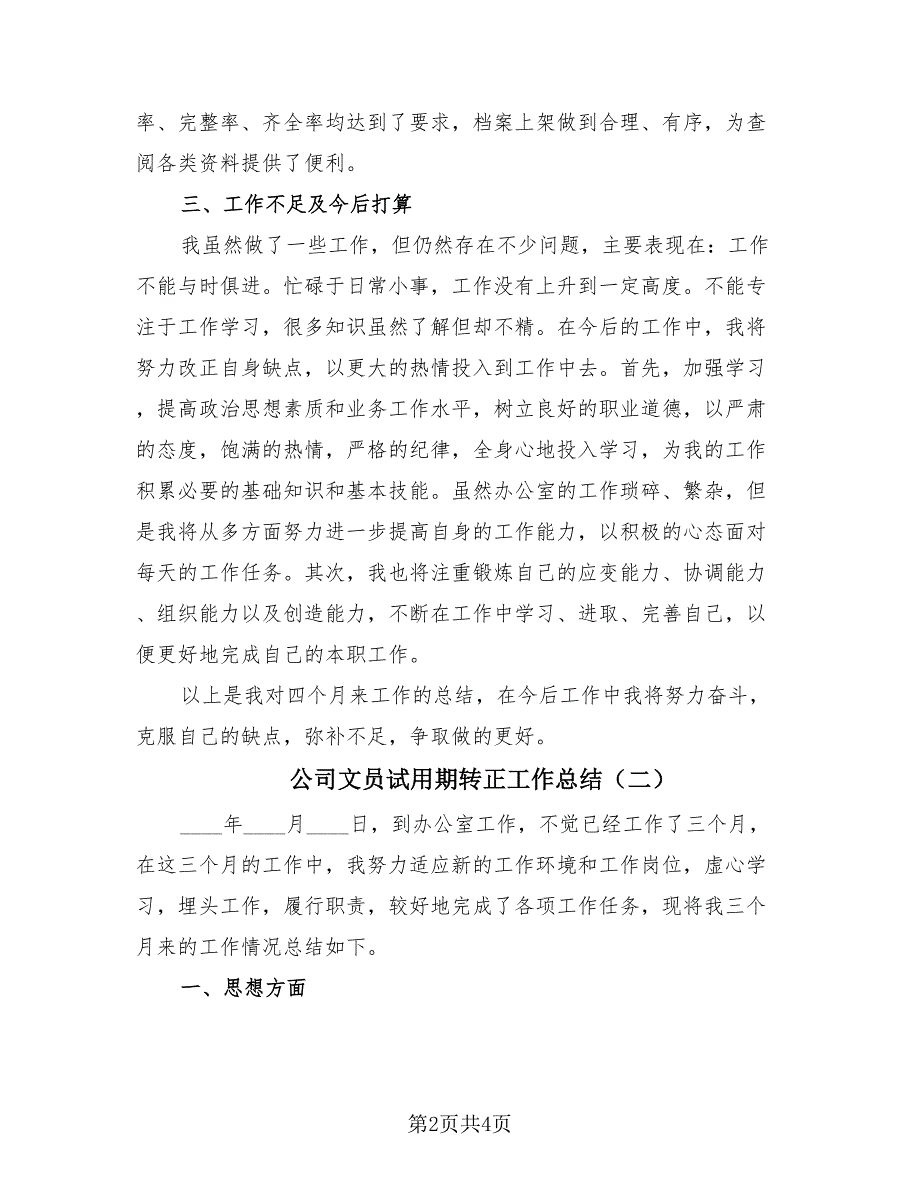 率、完整率、齐全率均达到了要求，档案上架做到合理、有序，为查
阅各类资料提供了便利。
三、工作不足及今后打算
我虽然做了一些工作，但仍然存在不少问题，主要表现在：工作
不能与时俱进。忙碌于日常小事，工作没有上升到一定高度。不能专
注于工作学习，很多知识虽然了解但却不精。在今后的工作中，我将
努力改正自身缺点，以更大的热情投入到工作中去。首先，加强学习
，提高政治思想素质和业务工作水平，树立良好的职业道德，以严肃
的态度，饱满的热情，严格的纪律，全身心地投入学习，为我的工作
积累必要的基础知识和基本技能。虽然办公室的工作琐碎、繁杂，但
是我将从多方面努力进一步提高自身的工作能力，以积极的心态面对
每天的工作任务。其次，我也将注重锻炼自己的应变能力、协调能力
、组织能力以及创造能力，不断在工作中学习、进取、完善自己，以
便更好地完成自己的本职工作。
以上是我对四个月来工作的总结，在今后工作中我将努力奋斗，
克服自己的缺点，弥补不足，争取做的更好。
公司文员试用期转正工作总结（二）
____年____月____日，到办公室工作，不觉已经工作了三个月，
在这三个月的工作中，我努力适应新的工作环境和工作岗位，虚心学
习，埋头工作，履行职责，较好地完成了各项工作任务，现将我三个
月来的工作情况总结如下。
一、思想方面
第2页共4页